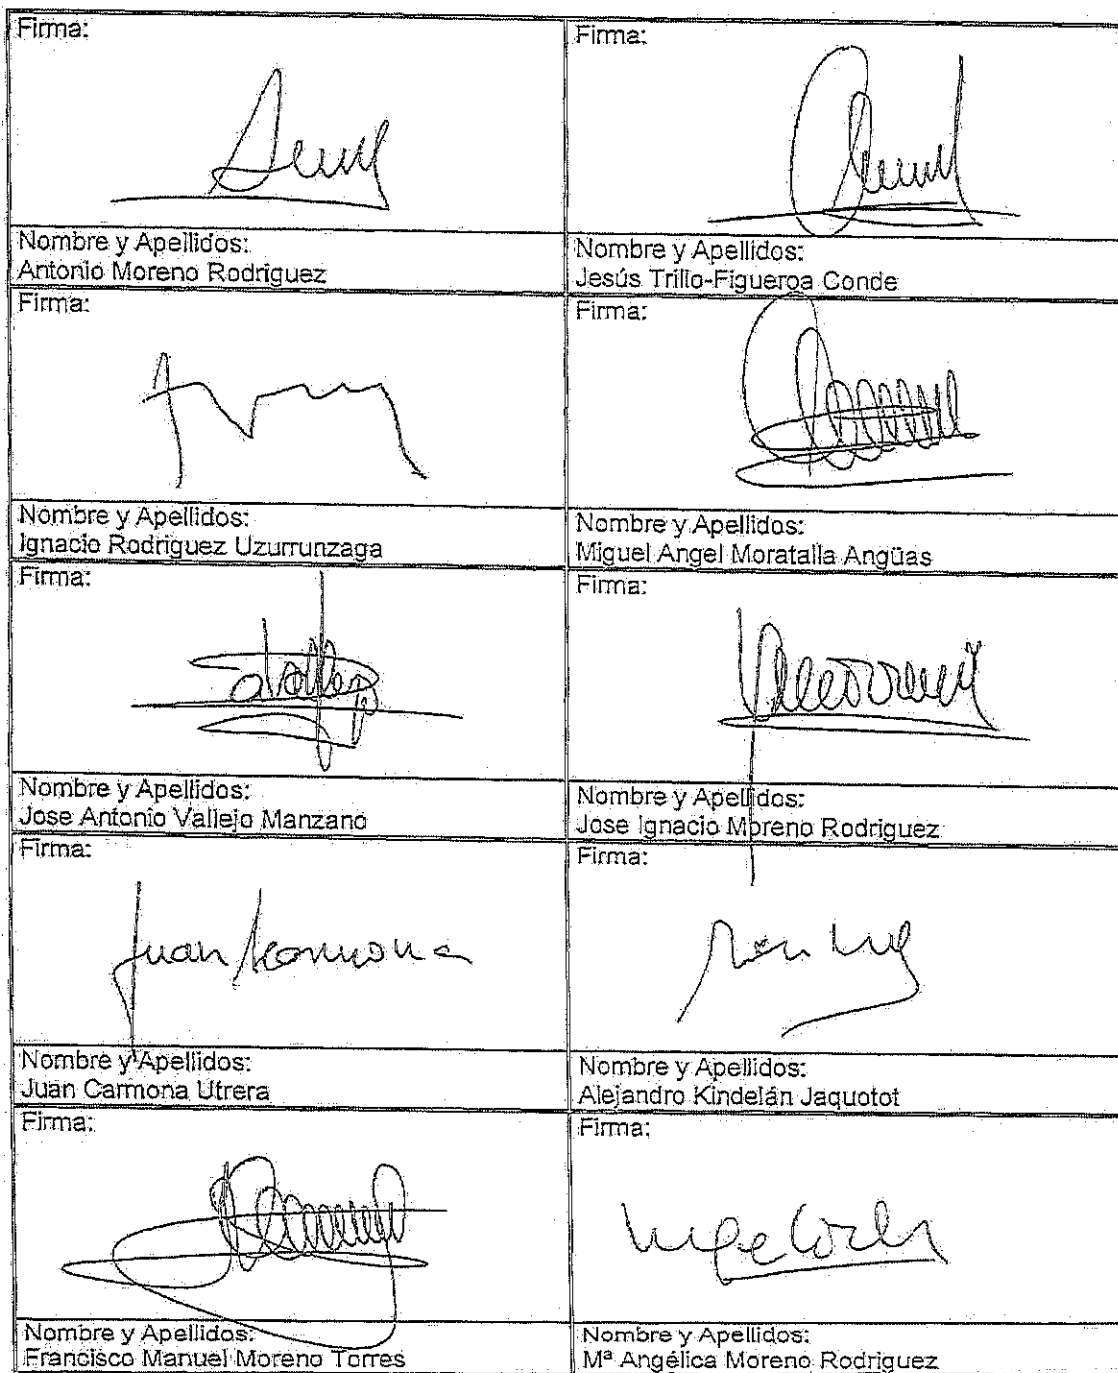 Firma:
Firma:
Nombre y Apellidos:
Antonio Moreno Rodriguez
Nombre y Apellidos:
Jesús Trillo-Figueroa Conde
Firma:
Firma:
Nombre y Apellidos:
Ignacio Rodriguez Uzurrunzaga
Nombre y Apellidos:
Miguel Angel Moratalla Angüas
Firma:
Firma:
Nombre y Apellidos:
Jose Antonio Vallejo Manzano
Nombre y Apellidos:
Jose Ignacio Moreno Rodriguez
Firma:
Juan Carmona
Firma:
Nombre y Apellidos:
Juan Carmona Utrera
Nombre y Apellidos:
Alejandro Kindelán Jaquotot
Firma:
Firma:
Nombre y Apellidos:
Francisco Manuel Moreno Torres
Nombre y Apellidos:
Mª Angélica Moreno Rodriguez